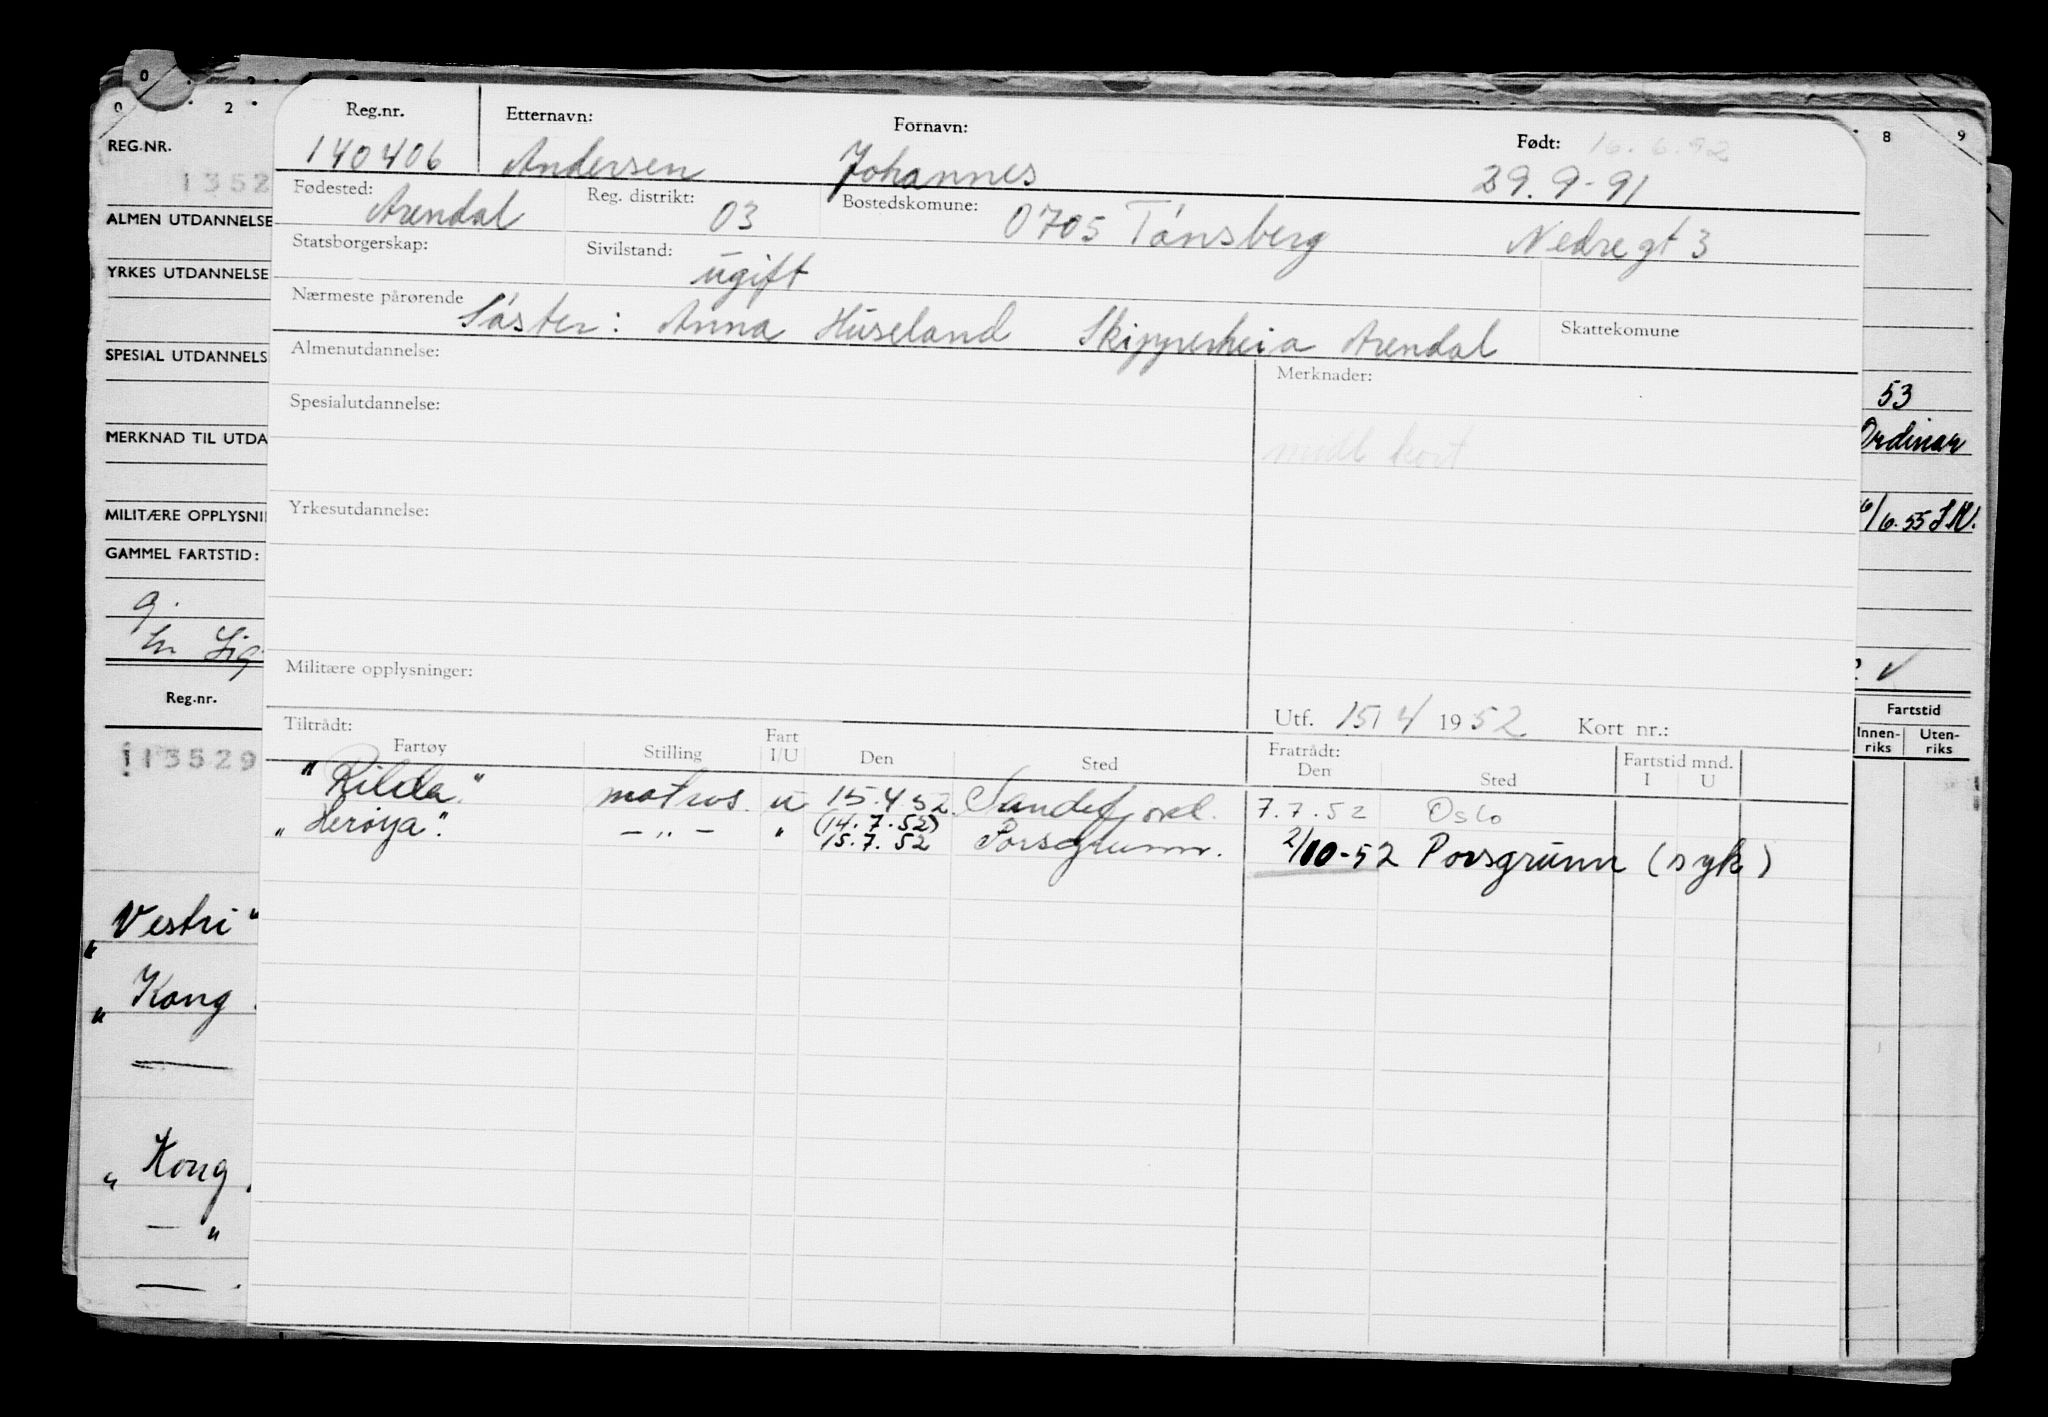 0 2 8 9
REG.NR.
1352
ALMEN UTDANNELSE
YRKES UTDANNELSE
SPESIAL UTDANNELS
MERKNAD TIL UTDA
MILITÆRE OPPLYSNI
GAMMEL FARTSTID:
9.
Reg.nr.
113529
"Vestri"
"Kong
"Kong
— "
Reg.nr. Etternavn: Fornavn: Født: 16.6.92
140406 Andersen Johannes 29.9-91
Fødested: Arendal Reg. distrikt: 03 Bostedskomune: 0705 Tønsberg Nedregt 3
Statsborgerskap: Sivilstand: ugift
Nærmeste pårørende Søster: Anna Huseland Skipperheia Arendal Skattekomune
Almenutdannelse: Merknader:
Spesialutdannelse:
midl kort
Yrkesutdannelse:
Militære opplysninger:
Utf. 15/4 1952 Kort nr.:
Tiltrådt: Fratrådt: Fartstid mnd.
Fartøy Stilling Fart I/U Den Sted Den Sted I U
"Rilda." matros. u 15.4.52. Sandefjord. 7.7.52 Oslo
"Herøya". — " — " (14.7.52) 15.7.52 Porsgrunn. 2/10-52 Porsgrunn (syk)
53
Ordinær
/6.55
Fartstid
Innen-riks Uten-riks